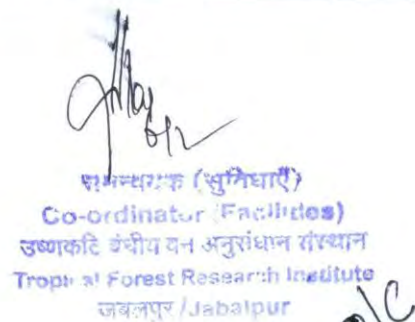 समन्वयक (सुविधाएँ)
Co-ordinator (Facilities)
उष्णकटिबंधीय वन अनुसंधान संस्थान
Tropical Forest Research Institute
जबलपुर/Jabalpur